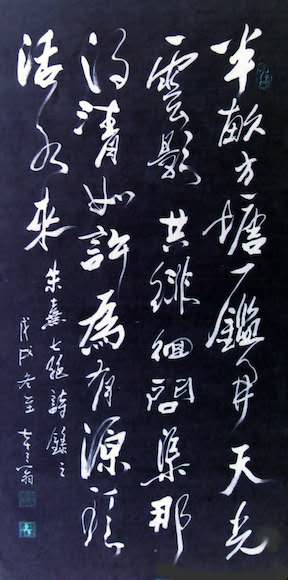 半畝方塘一鑑開天光
雲影共徘徊問渠那
得清如許為有源頭
活水來
朱熹七絕詩錄之
戊戌冬至翁